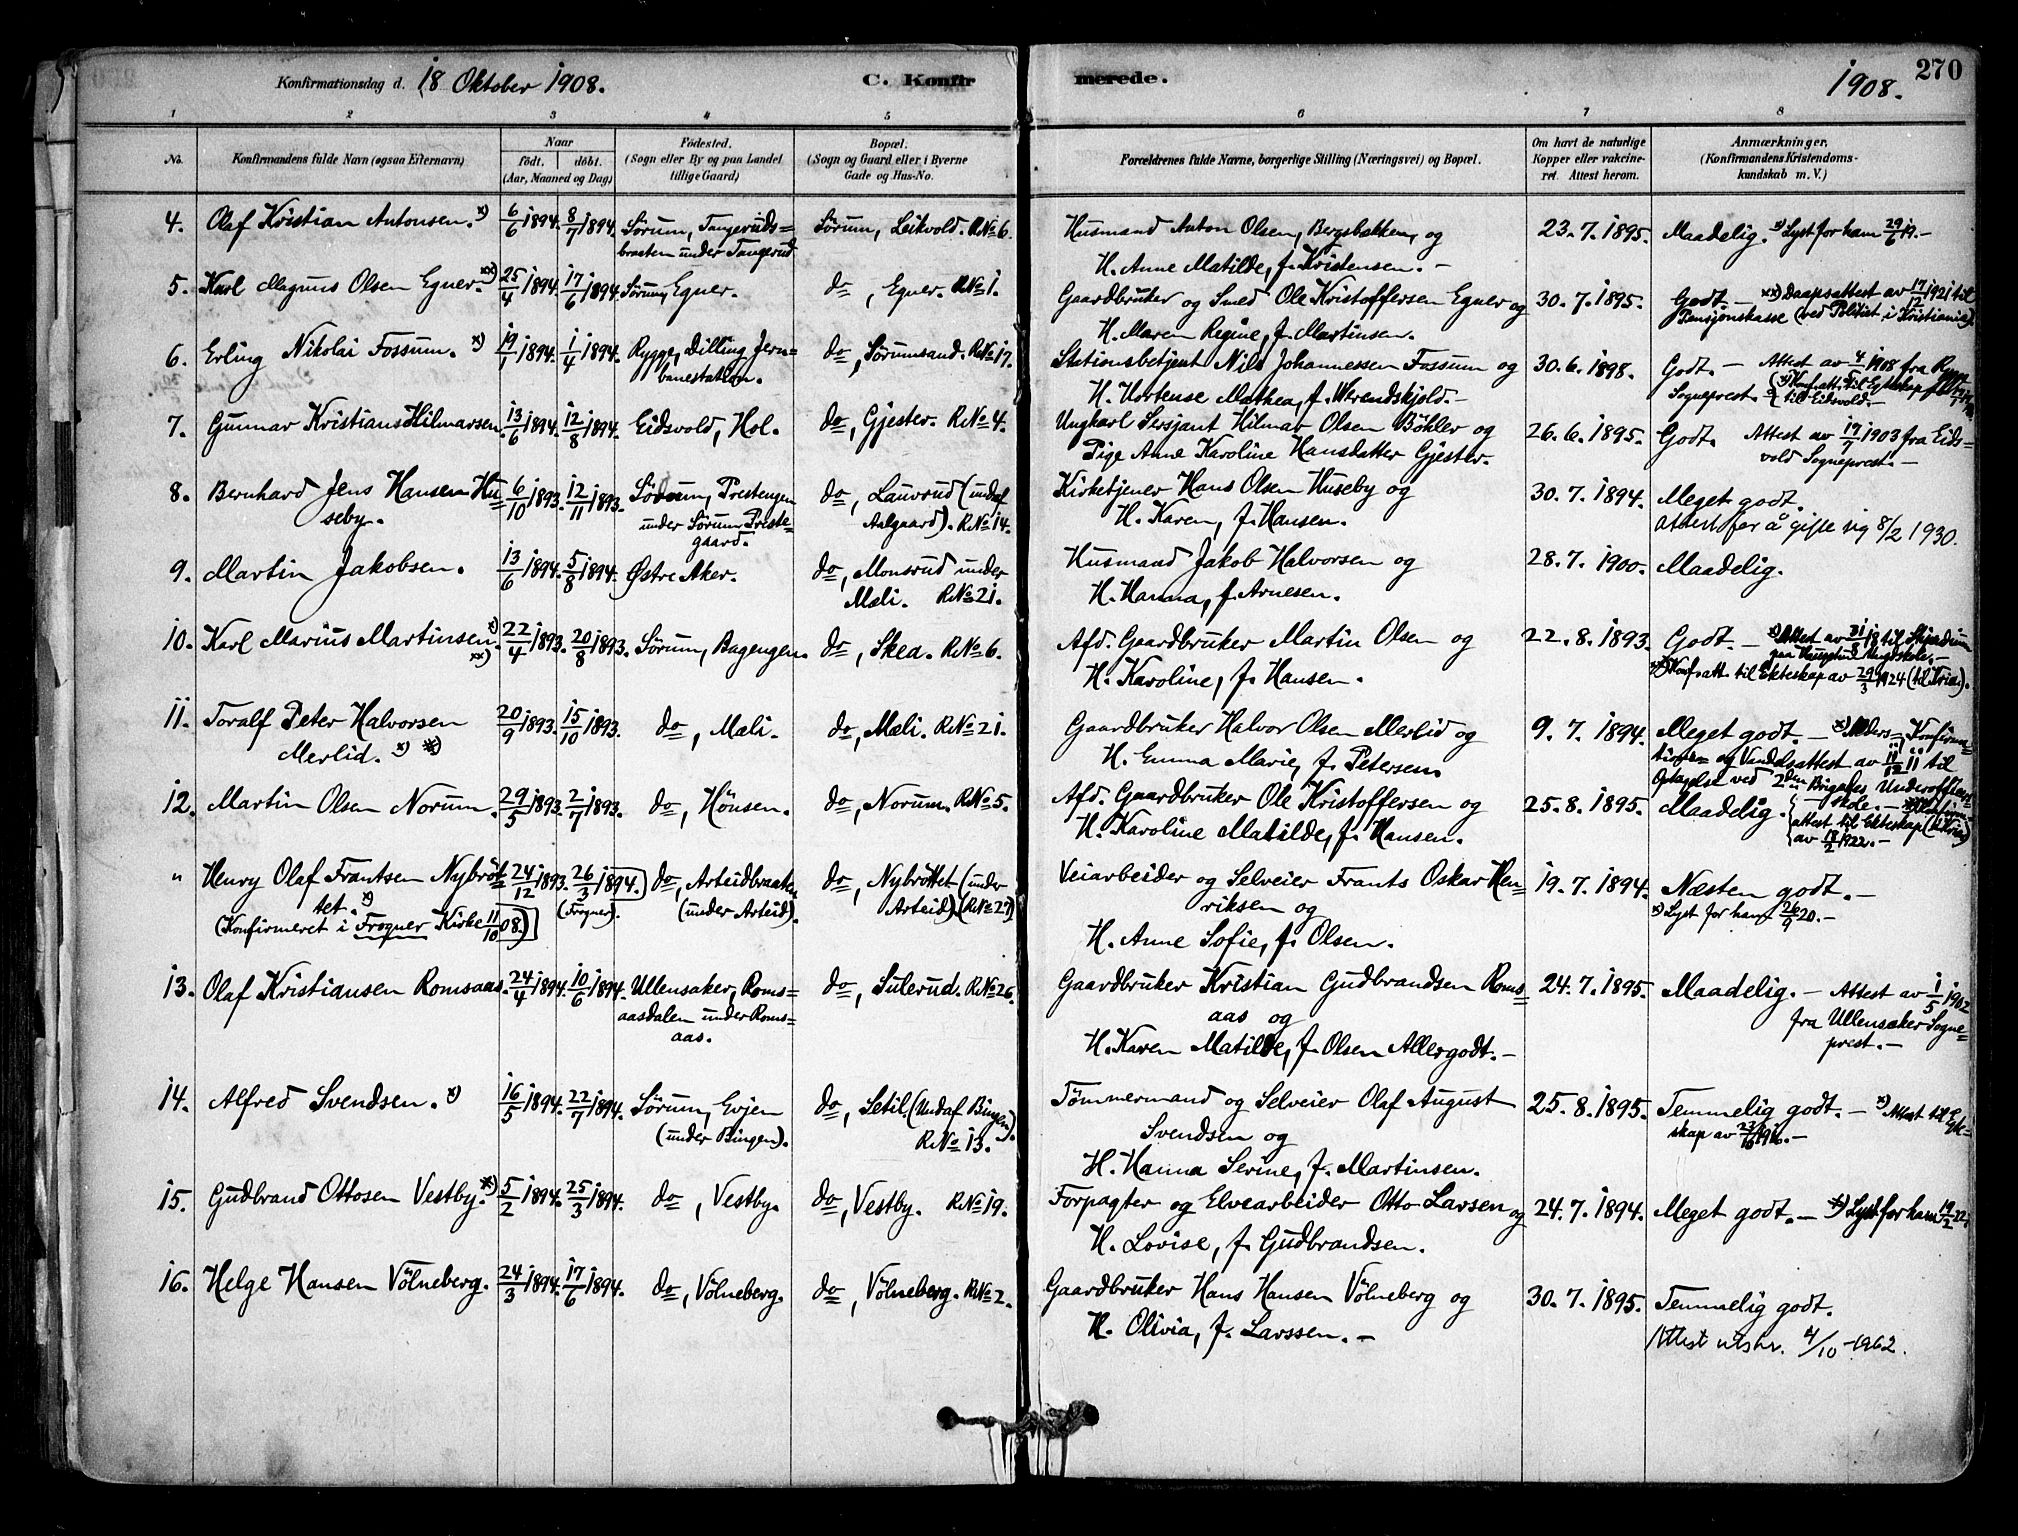 Konfirmationsdag d. 18 Oktober 1908. C. Konfirmerede. 1908. 270
1 2 3 4 5 6 7 8
No. Konfirmandens fulde Navn (ogsaa Efternavn) Naar födt. döbt. (Aar, Maaned og Dag) Födested. (Sogn eller By og paa Landet tillige Gaard) Bopæl. (Sogn og Gaard eller i Byerne Gade og Hus-No. Forældrenes fulde Navne, borgerlige Stilling (Næringsvei) og Bopæl. Om havt de naturlige Kopper eller vakcineret. Attest herom. Anmærkninger. (Konfirmandens Kristendomskundskab m. V.)
4. Olaf Kristian Antonsen. x) 6/6 1894. 8/7 1894. Sörum, Tangeruds= Sörum, Leikvold. R.No 6. Husmand Anton Olsen, Bergsbakken, og 23. 7. 1895. Maadelig. x) Lyst for ham 29/6 19.-
braaten under Tangerud H. Anne Matilde, f. Kristensen. -
5. Karl Magnus Olsen Egner. xx) 25/4 1894. 17/6 1894. Sörum, Egner. do, Egner. R.No 1. Gaardbruker og Smed Ole Kristoffersen Egner og 30. 7. 1895. Godt. - xx) Daapsattest av 17/12 1921 til
H. Maren Regine, f. Martinsen. Pensjonskasse (ved Politiet i Kristiania).
6. Erling Nikolai Fossum. x) 19/1 1894. 1/4 1894. Rygge, Dilling Jern= do, Sörumsand. R.No 17. Stationsbetjent Nils Johannessen Fossum og 30. 6. 1898. Godt. - Attest av 4/5 1908 fra Rygge
banestation. H. Hortense Mathea, f. Werendskjold. - Sogneprest. x) Konf.att. til Egteskap
til Eidsvold. -
7. Gunnar Kristians Hilmarsen 13/6 1894. 12/8 1894. Eidsvold, Hol. do, Gjester. R.No 4. Ungkarl Sersjant Hilmar Olsen Böhler og 26. 6. 1895. Godt. Attest av 17/7 1903 fra Eids=
Pige Anne Karoline Hansdatter Gjester. vold Sogneprest. -
8. Bernhard Jens Hansen Hu= 6/10 1893. 12/11 1893. Sörum, Prestengen do, Lauvrud (und. af Kirketjener Hans Olsen Huseby og 30. 7. 1894. Meget godt.
seby. under Sörum Preste= Aalgaard). R.No 14. H. Karen, f. Hansen. attest for å gifte sig 8/2 1930.
gaard.
9. Martin Jakobsen. 13/6 1894. 5/8 1894. Østre Aker. do, Monsrud under Husmand Jakob Halvorsen og 28. 7. 1900. Maadelig.
Mæli. R.No 21. H. Hanna, f. Arnesen.
10. Karl Marius Martinsen. x) xx) 22/4 1893. 20/8 1893. Sörum, Bagengen. do, Skea. R.No 6. Afd. Gaardbruker Martin Olsen og 22. 8. 1893. Godt. - x) Attest av 31/8 18 til
H. Karoline, f. Hansen. xx) Konf.att. til Ekteskap av 29/3 1924 (til Kria).
11. Toralf Peter Halvorsen 20/9 1893. 15/10 1893. do, Mæli. do, Mæli. R.No 21. Gaardbruker Halvor Olsen Merlid og 9. 7. 1894. Meget godt. - x) Alders=, Konfirma=
Merlid. x) xx) H. Emma Marie, f. Petersen. tions= og Vandelsattest av 11/12 11 til
Optagelse ved 2den Brigades Underofficers=
skole. -
12. Martin Olsen Norum. 29/5 1893. 2/7 1893. do, Hönsen. do, Norum. R.No 5. Afd. Gaardbruker Ole Kristoffersen og 25. 8. 1895. Maadelig.
H. Karoline Matilde, f. Hansen. attest til Ekteskap (til Kria)
av 18/2 1922. -
" Henry Olaf Frantsen Nybröt= 24/12 1893. 26/3 1894. do, Arteidbraaten do, Nybröttet (under Veiarbeider og Selveier Frants Oskar Hen= 19. 7. 1894. Næsten godt. -
tet. x) (Frogner). (under Arteid). Arteid). (R.No 27) riksen og x) Lyst for ham 26/9 20. -
(Konfirmeret i Frogner Kirke 11/10 08.) H. Anne Sofie, f. Olsen.
13. Olaf Kristiansen Romsaas. 24/4 1894. 10/6 1894. Ullensaker, Roms= do, Sulerud. R.No 26. Gaardbruker Kristian Gudbrandsen Roms= 24. 7. 1895. Maadelig. - Attest av 1/5 1902
aasdalen under Roms= aas og fra Ullensaker Sogne=
aas. H. Karen Matilde, f. Olsen Allergodt. - prest. -
14. Alfred Svendsen. x) 16/5 1894. 22/7 1894. Sörum, Evjen do, Setil (und. af Bingen). Tömmermand og Selveier Olaf August 25. 8. 1895. Temmelig godt. - x) Attest til Ek=
(under Bingen). R.No 13. Svendsen og skap av 23/10 16. -
H. Hanna Serine, f. Martinsen.
15. Gudbrand Ottosen Vestby. x) 5/2 1894. 25/3 1894. do, Vestby. do, Vestby. R.No 19. Forpagter og Elvearbeider Otto Larsen og 24. 7. 1894. Meget godt. - x) Lyst for ham 19/2 22.
H. Lovise, f. Gudbrandsen.
16. Helge Hansen Völneberg. 24/3 1894. 17/6 1894. do, Völneberg. do, Völneberg. R.No 2. Gaardbruker Hans Hansen Völneberg og 30. 7. 1895. Temmelig godt.
H. Olivia, f. Larssen. - Attest utskr. 4/10 - 1962.